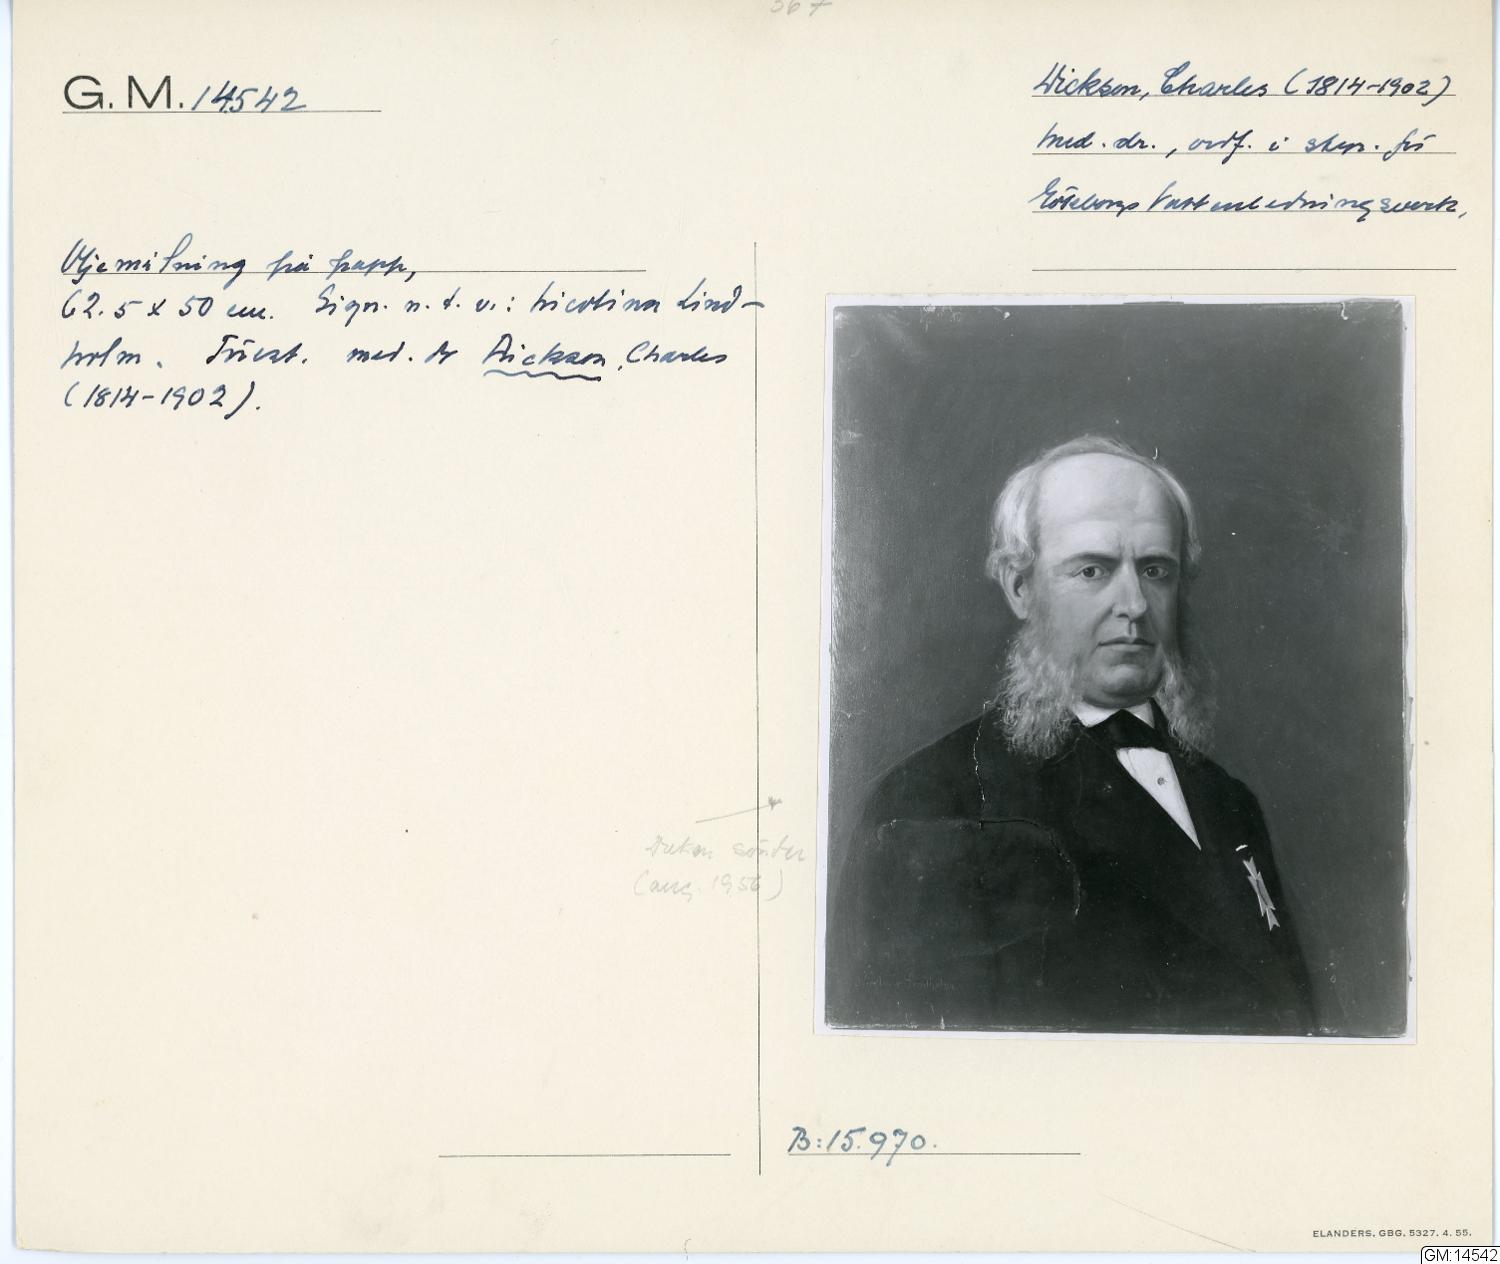 367
G. M. 14542
Dickson, Charles (1814-1902)
Med. dr., ordf. i styr. för
Göteborgs Vattenledningsverk,
Oljemålning på papp,
62.5 x 50 cm. Sign. n. t. v.: Nicolina Lind-
holm. Förest. med. dr Dickson, Charles
(1814-1902).
Duken sönder
(aug. 1956)
B:15.970.
ELANDERS, GBG. 5327. 4. 55.
GM:14542